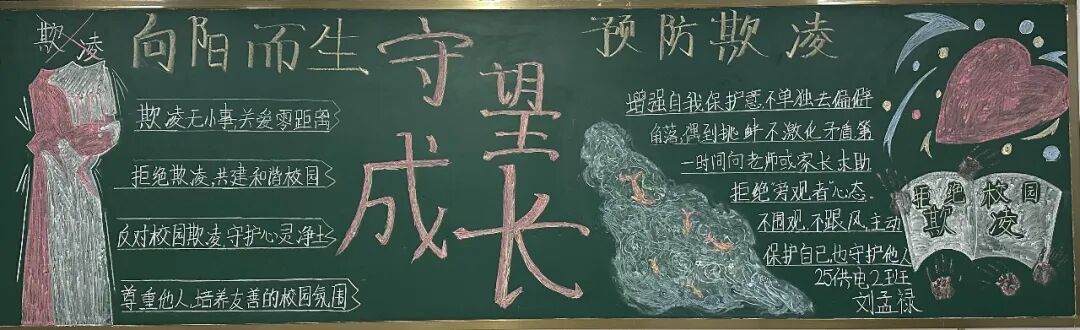 欺凌
向阳而生
守望成长
预防欺凌
欺凌无小事,关爱零距离
拒绝欺凌,共建和谐校园
反对校园欺凌,守护心灵净土
尊重他人,培养友善的校园氛围
增强自我保护意不单独去偏僻
角落,遇到挑衅不激化矛盾第
一时间向老师或家长求助
拒绝旁观者心态.
不围观.不跟风,主动
保护自己,也守护他人
25供电2班
刘孟禄
拒绝校园
欺凌